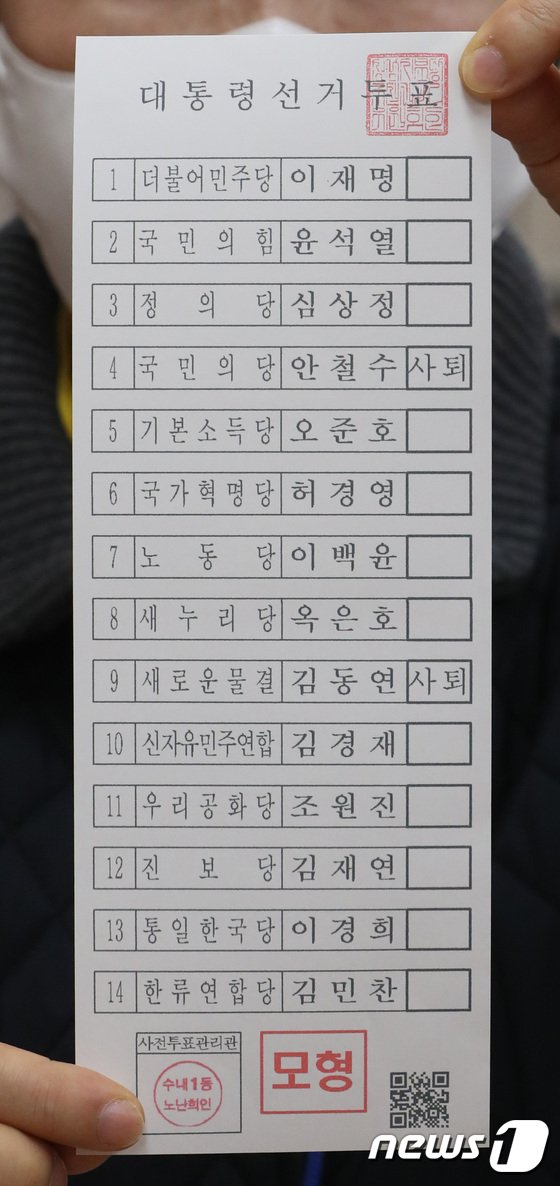 대통령선거투표
1 더불어민주당 이재명
2 국민의힘 윤석열
3 정의당 심상정
4 국민의당 안철수 사퇴
5 기본소득당 오준호
6 국가혁명당 허경영
7 노동당 이백윤
8 새누리당 옥은호
9 새로운물결 김동연 사퇴
10 신자유민주연합 김경재
11 우리공화당 조원진
12 진보당 김재연
13 통일한국당 이경희
14 한류연합당 김민찬
사전투표관리관
수내1동
노난희인
모형
news1